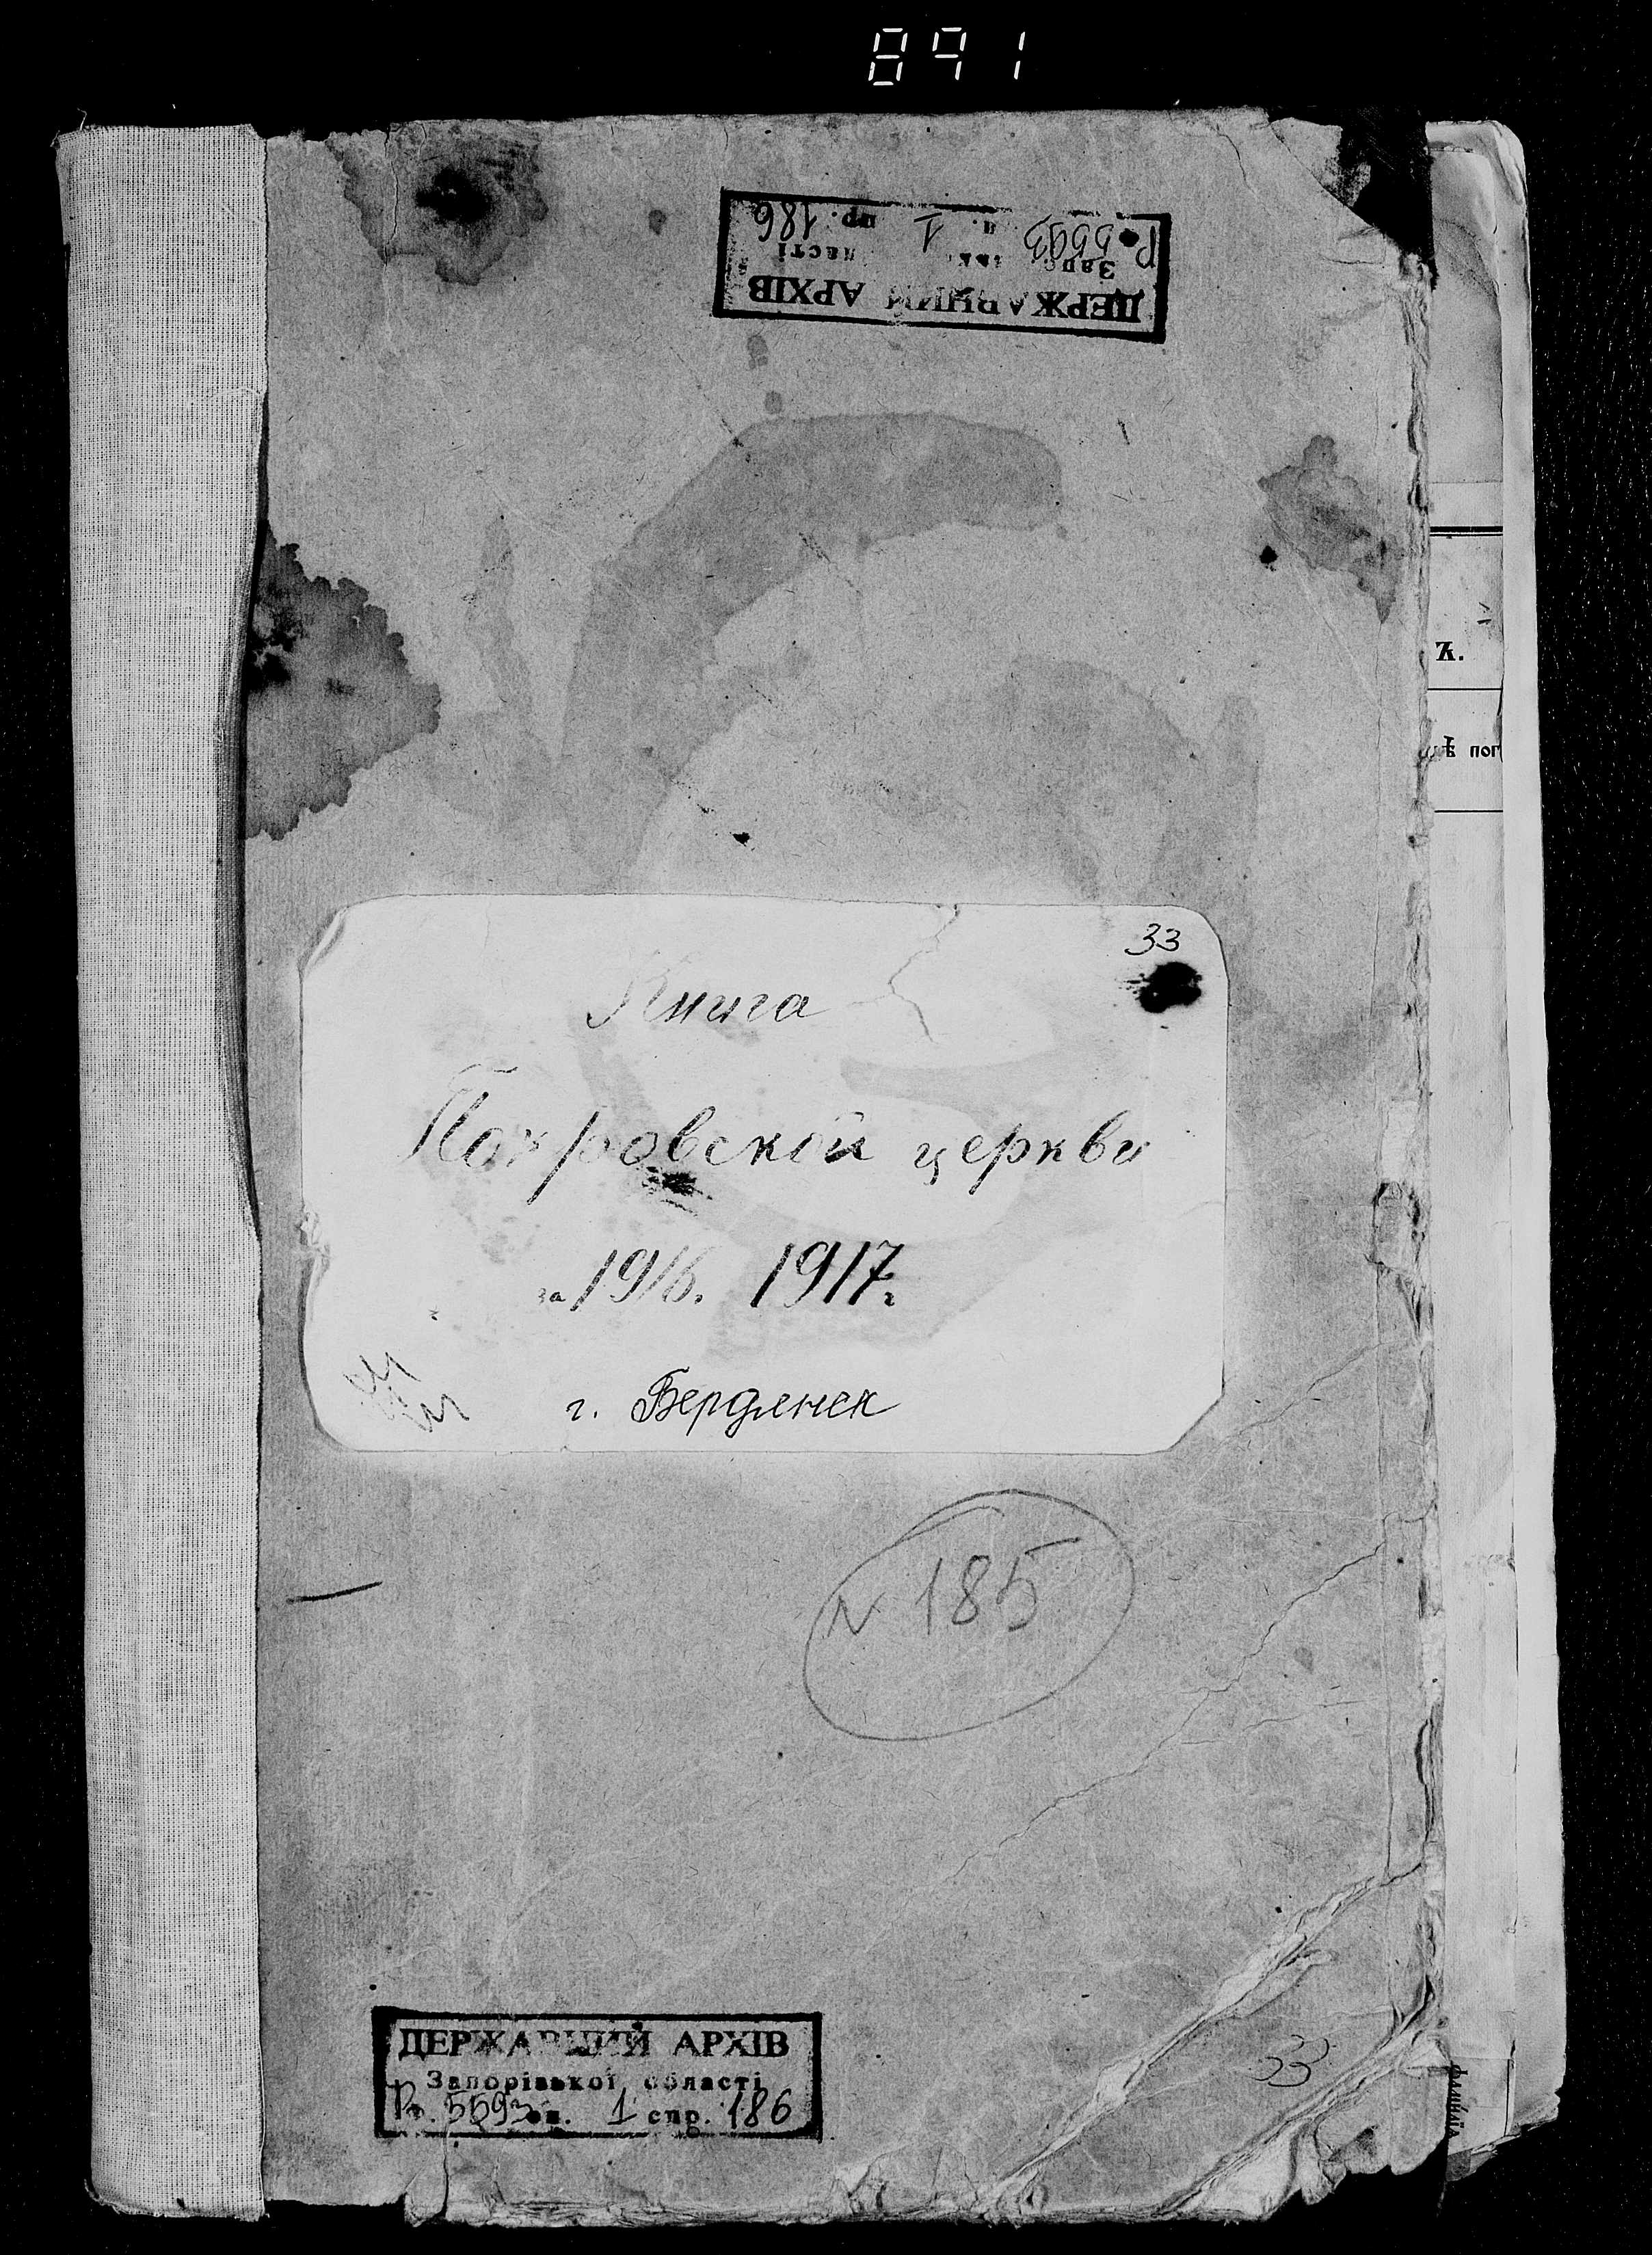 891
ДЕРЖАВНИЙ АРХІВ
Р. 5593 1 пр. 186
33
Книга
Покровской церкви
за 1916. 1917 г
г. Бердянск
N 185
ДЕРЖАВНИЙ АРХІВ
Запорізької області
Р. 5593 оп. 1 спр. 186
33
ѣ пог